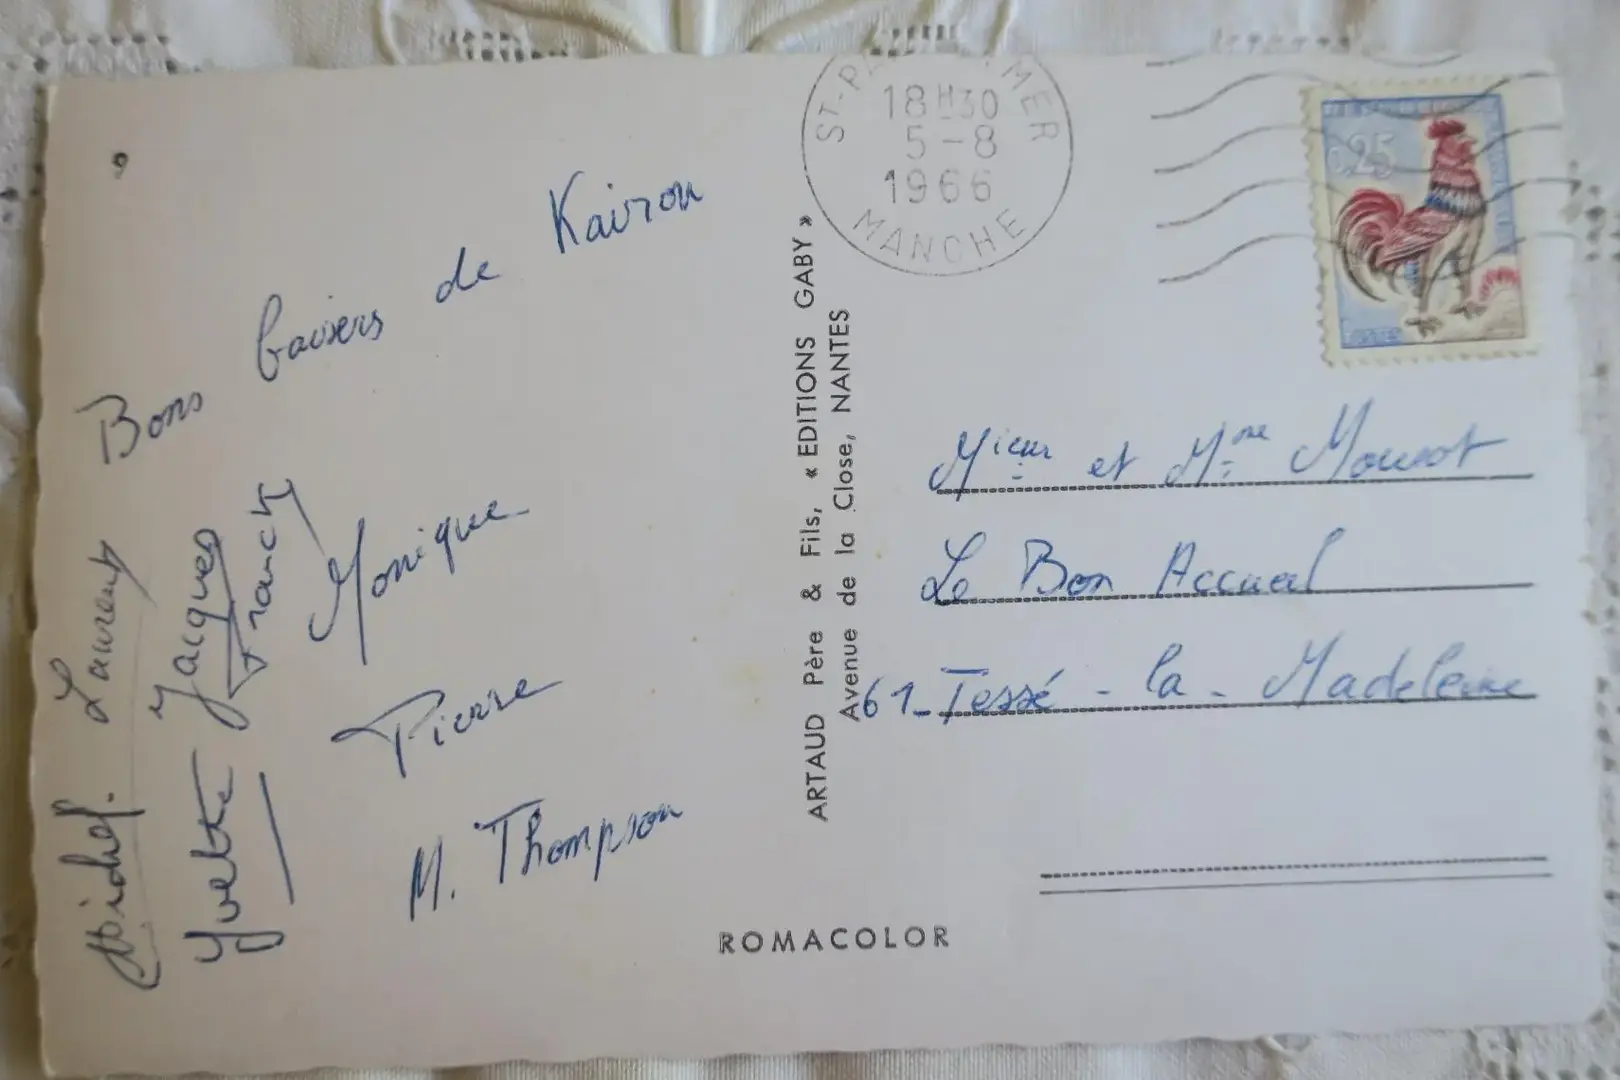 Bons baisers de Kairon
Monique
Pierre
M. Thompson
Franck
Jacques
Yvette
Laurent
Michel.
ARTAUD Père & Fils, « EDITIONS GABY »
Avenue de la Close, NANTES
ROMACOLOR
18H30
5-8
1966
MANCHE
0,25
Mieur et Mme Moussot
Le Bon Accueil
61-Tessé-la-Madeleine